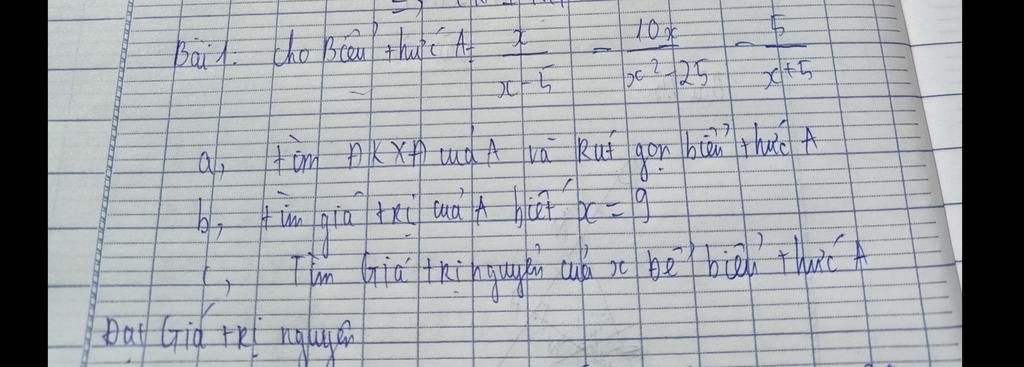 Bài 1: Cho Biểu thức A = x/(x-5) - 10x/(x²-25) - 5/(x+5)
a, tìm ĐKXĐ của A và Rút gọn biểu thức A
b, tìm giá trị của A biết x = 9
c, Tìm Giá trị nguyên của x Để biểu thức A
Đạt Giá trị nguyên